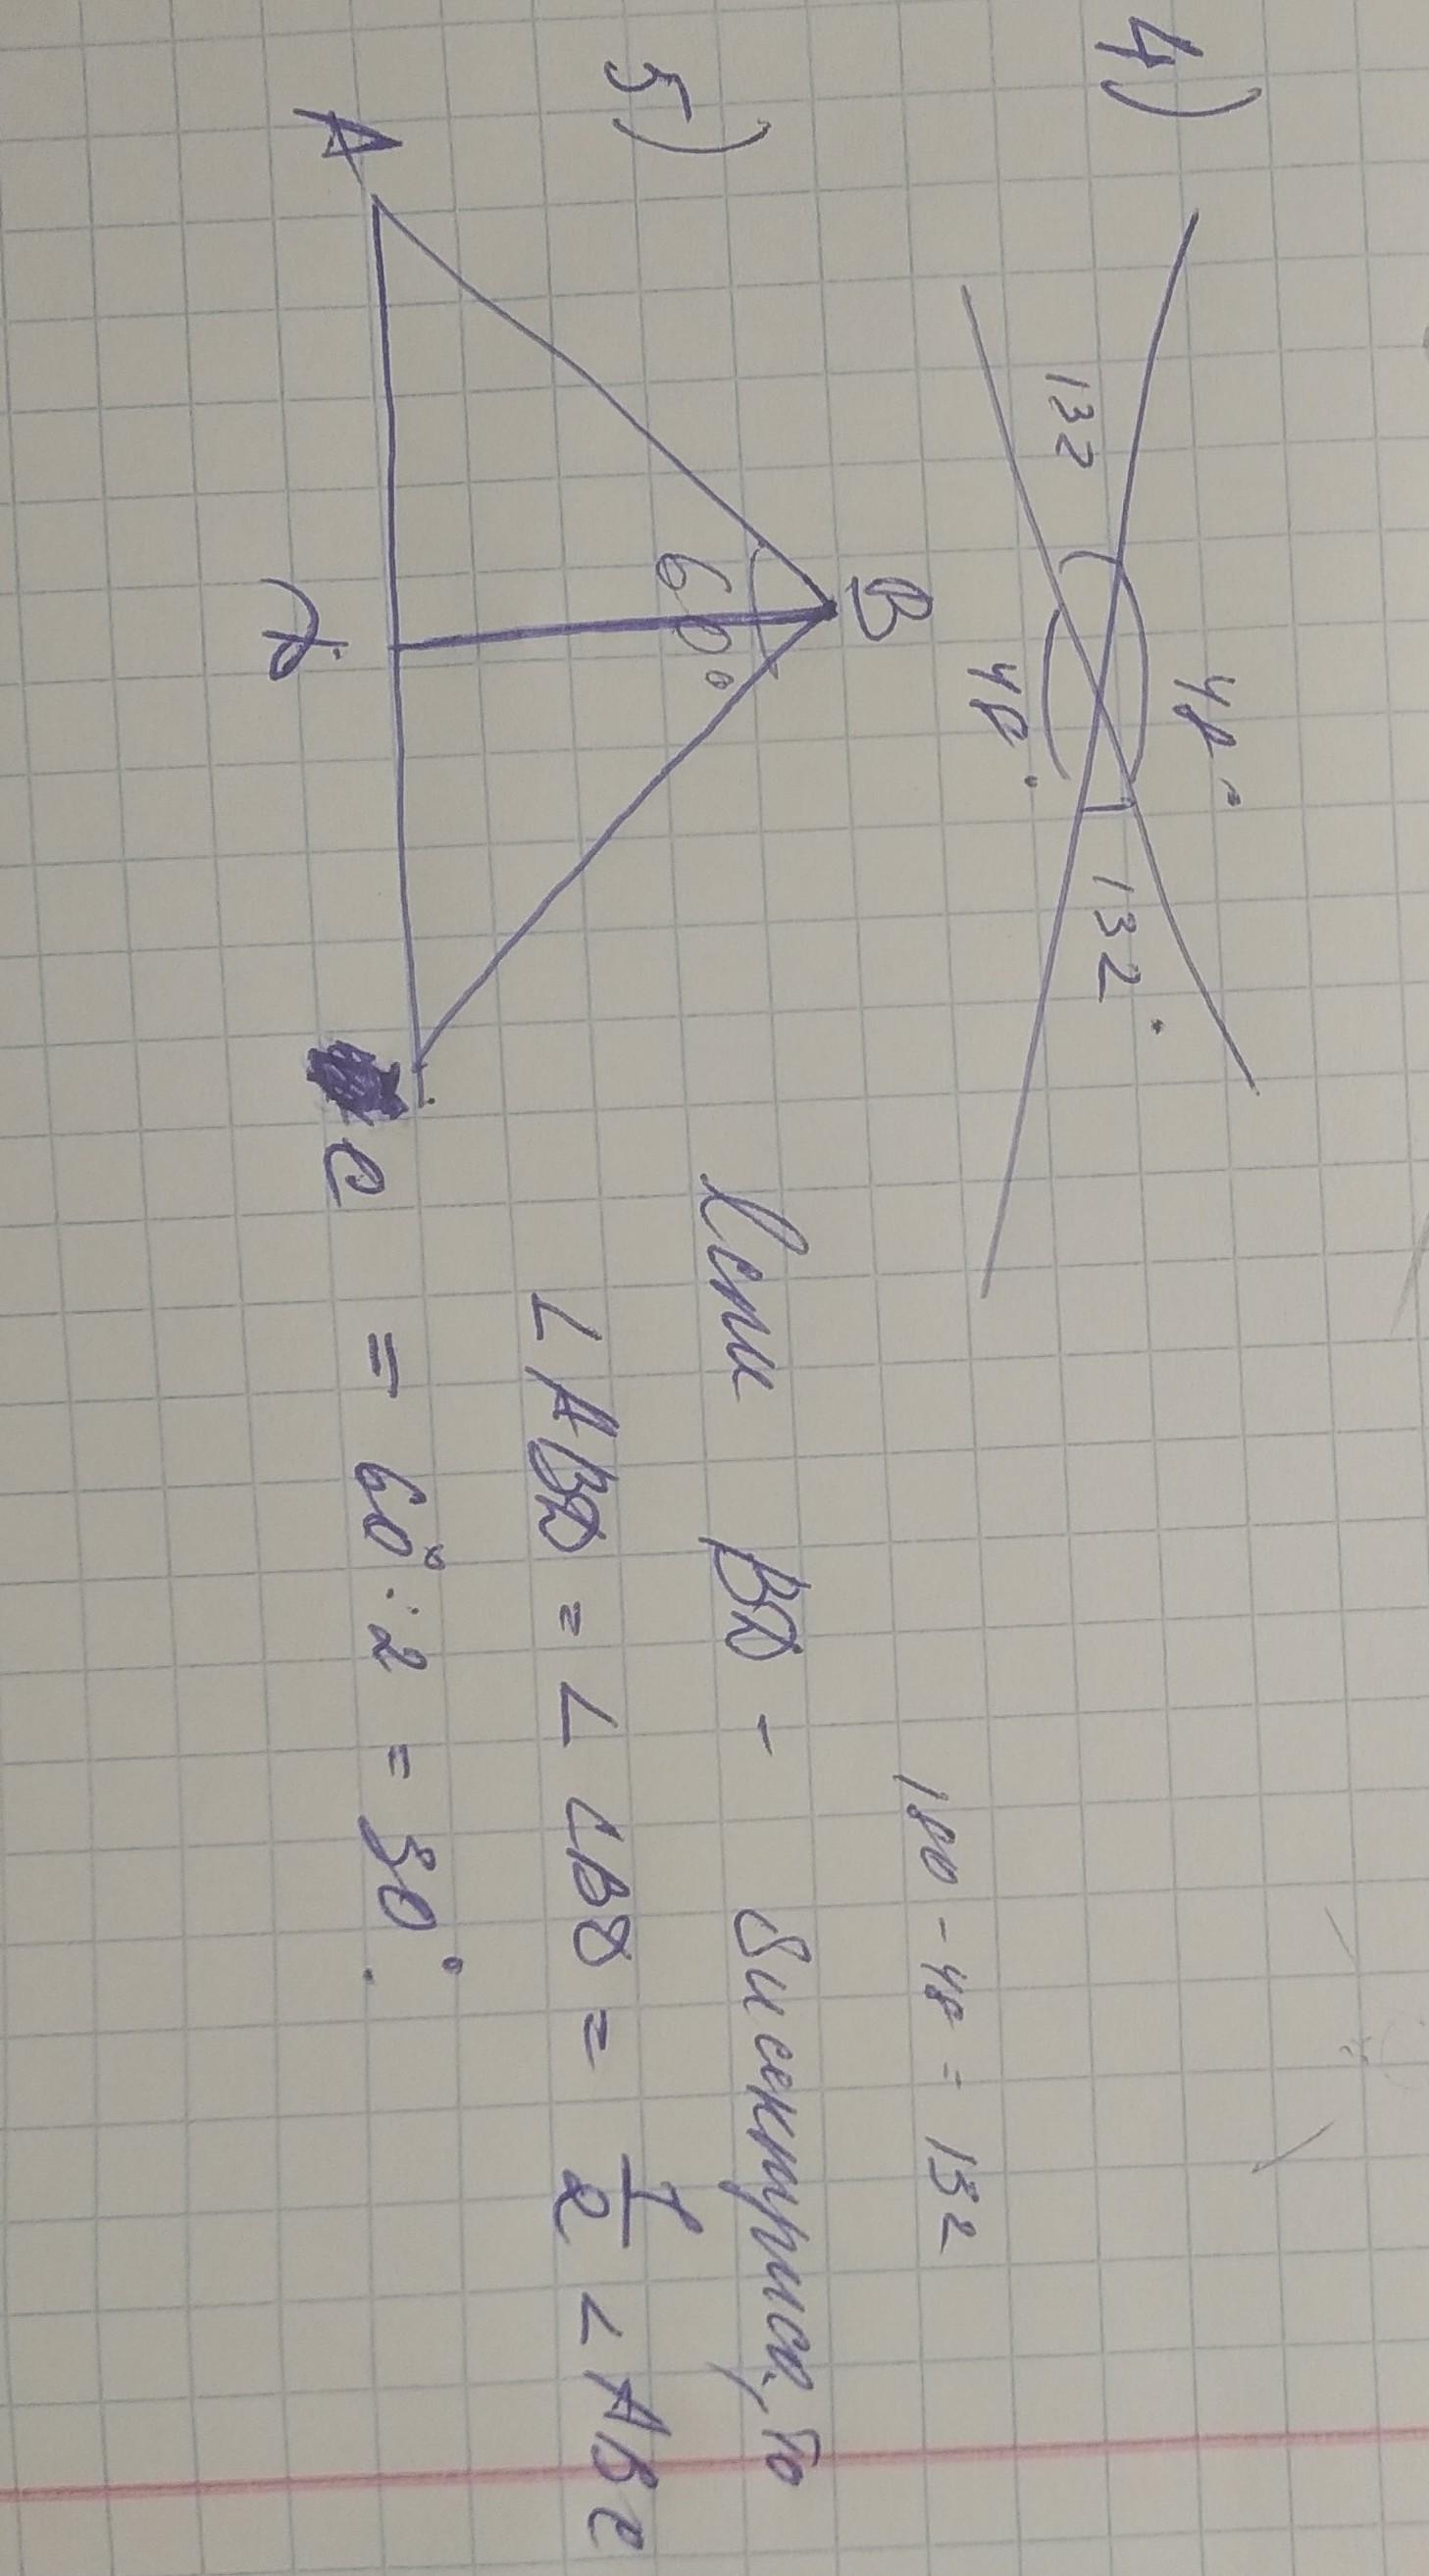 4)
48°
132
132°
48°
180 - 48 = 132
5)
B
60°
A
C
Если BD - биссектриса, то
∠ ABD = ∠ CBD = 1/2 ∠ ABC
= 60° : 2 = 30°.